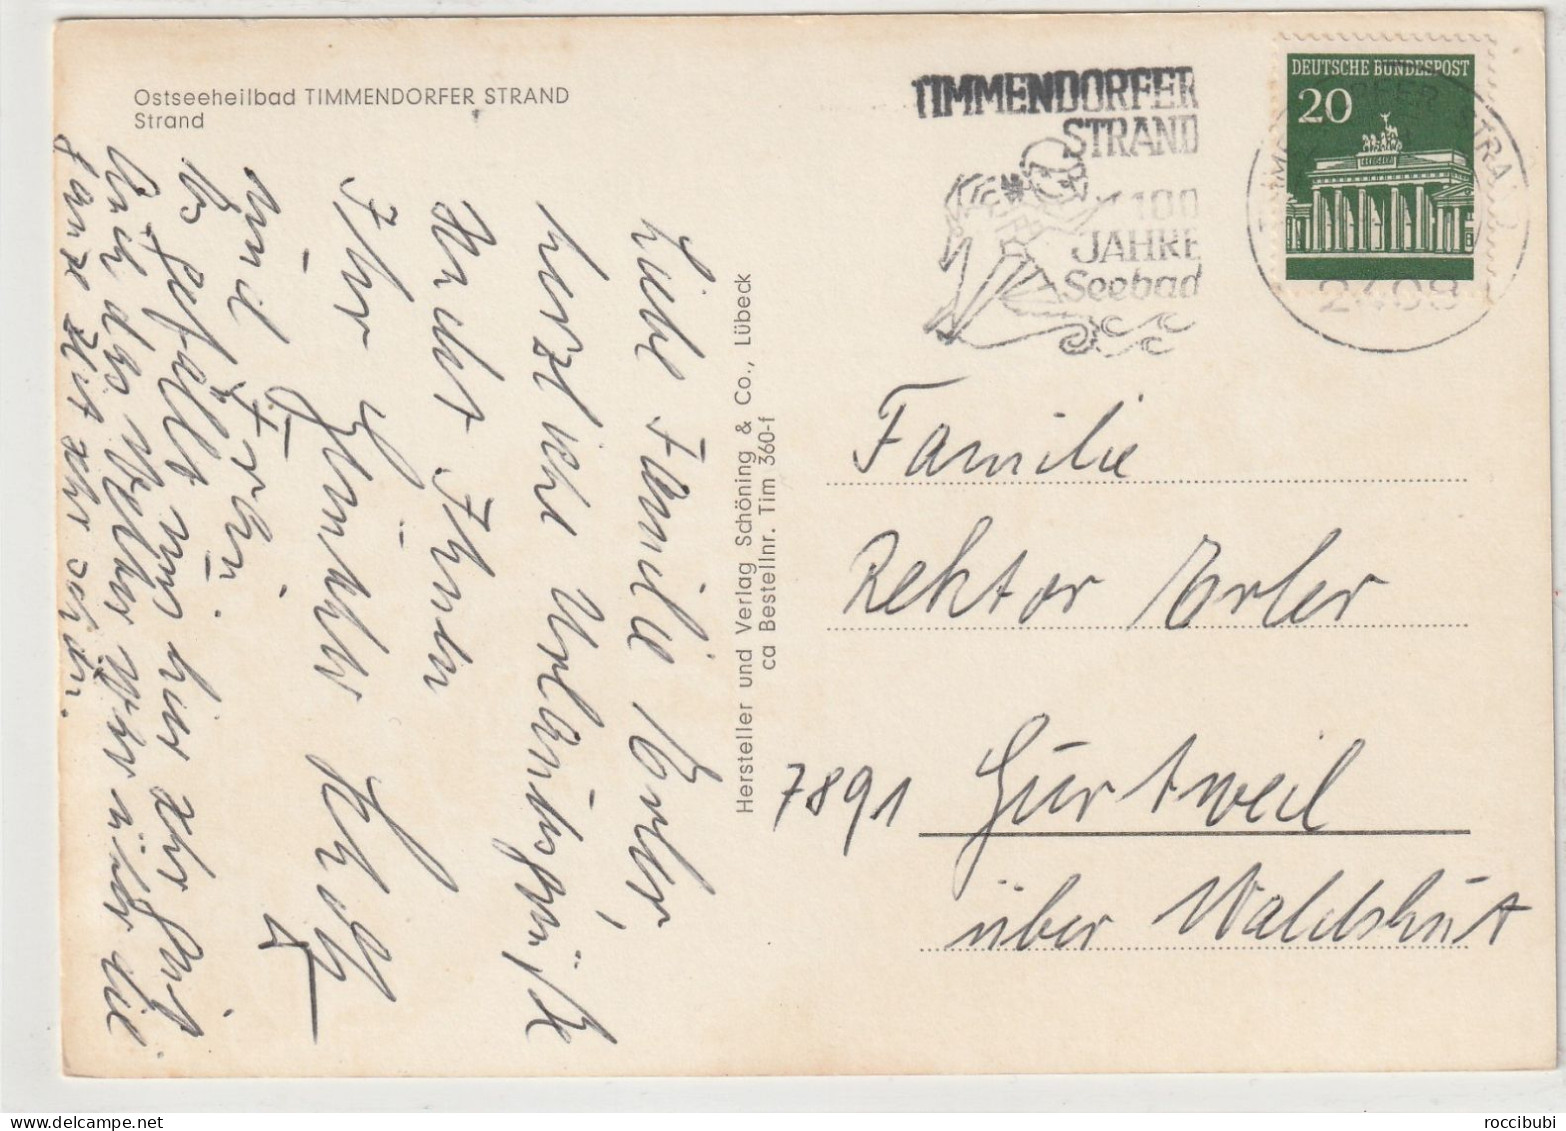 Ostseeheilbad TIMMENDORFER STRAND
Strand
Liebe Familie Erler,
herzliche Urlaubsgrüße
sendet Ihnen
Ihr Günther
und Frau.
Es gefällt mir hier sehr gut
Auch das Wetter war über die
ganze Zeit sehr schön.
Hersteller und Verlag Schöning & Co., Lübeck
ca Bestellnr. Tim 360-f
TIMMENDORFER
STRAND
100
JAHRE
Seebad
DEUTSCHE BUNDESPOST
20
2408
Familie
Rektor Erler
7891 Gurtweil
über Waldshut
roccibubi